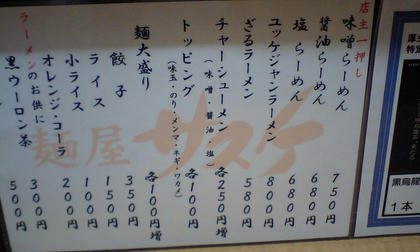 店主一押し
味噌らーめん 750
醤油らーめん 680円
塩らーめん 680円
ユッケジャンラーメン 800円
ざるラーメン 580円
チャーシューメン 各250円増
(味噌 醤油・塩)
トッピング 各100円増
(味玉・のり・メンマ・ネギ・ワカメ)
麺大盛り 各100円増
餃子 350円
ライス 150円
小ライス 100円
オレンジ・コーラ 200円
ラーメンのお供に
黒ウーロン茶 300円
500円
麺屋サスケ
黒烏龍
1本